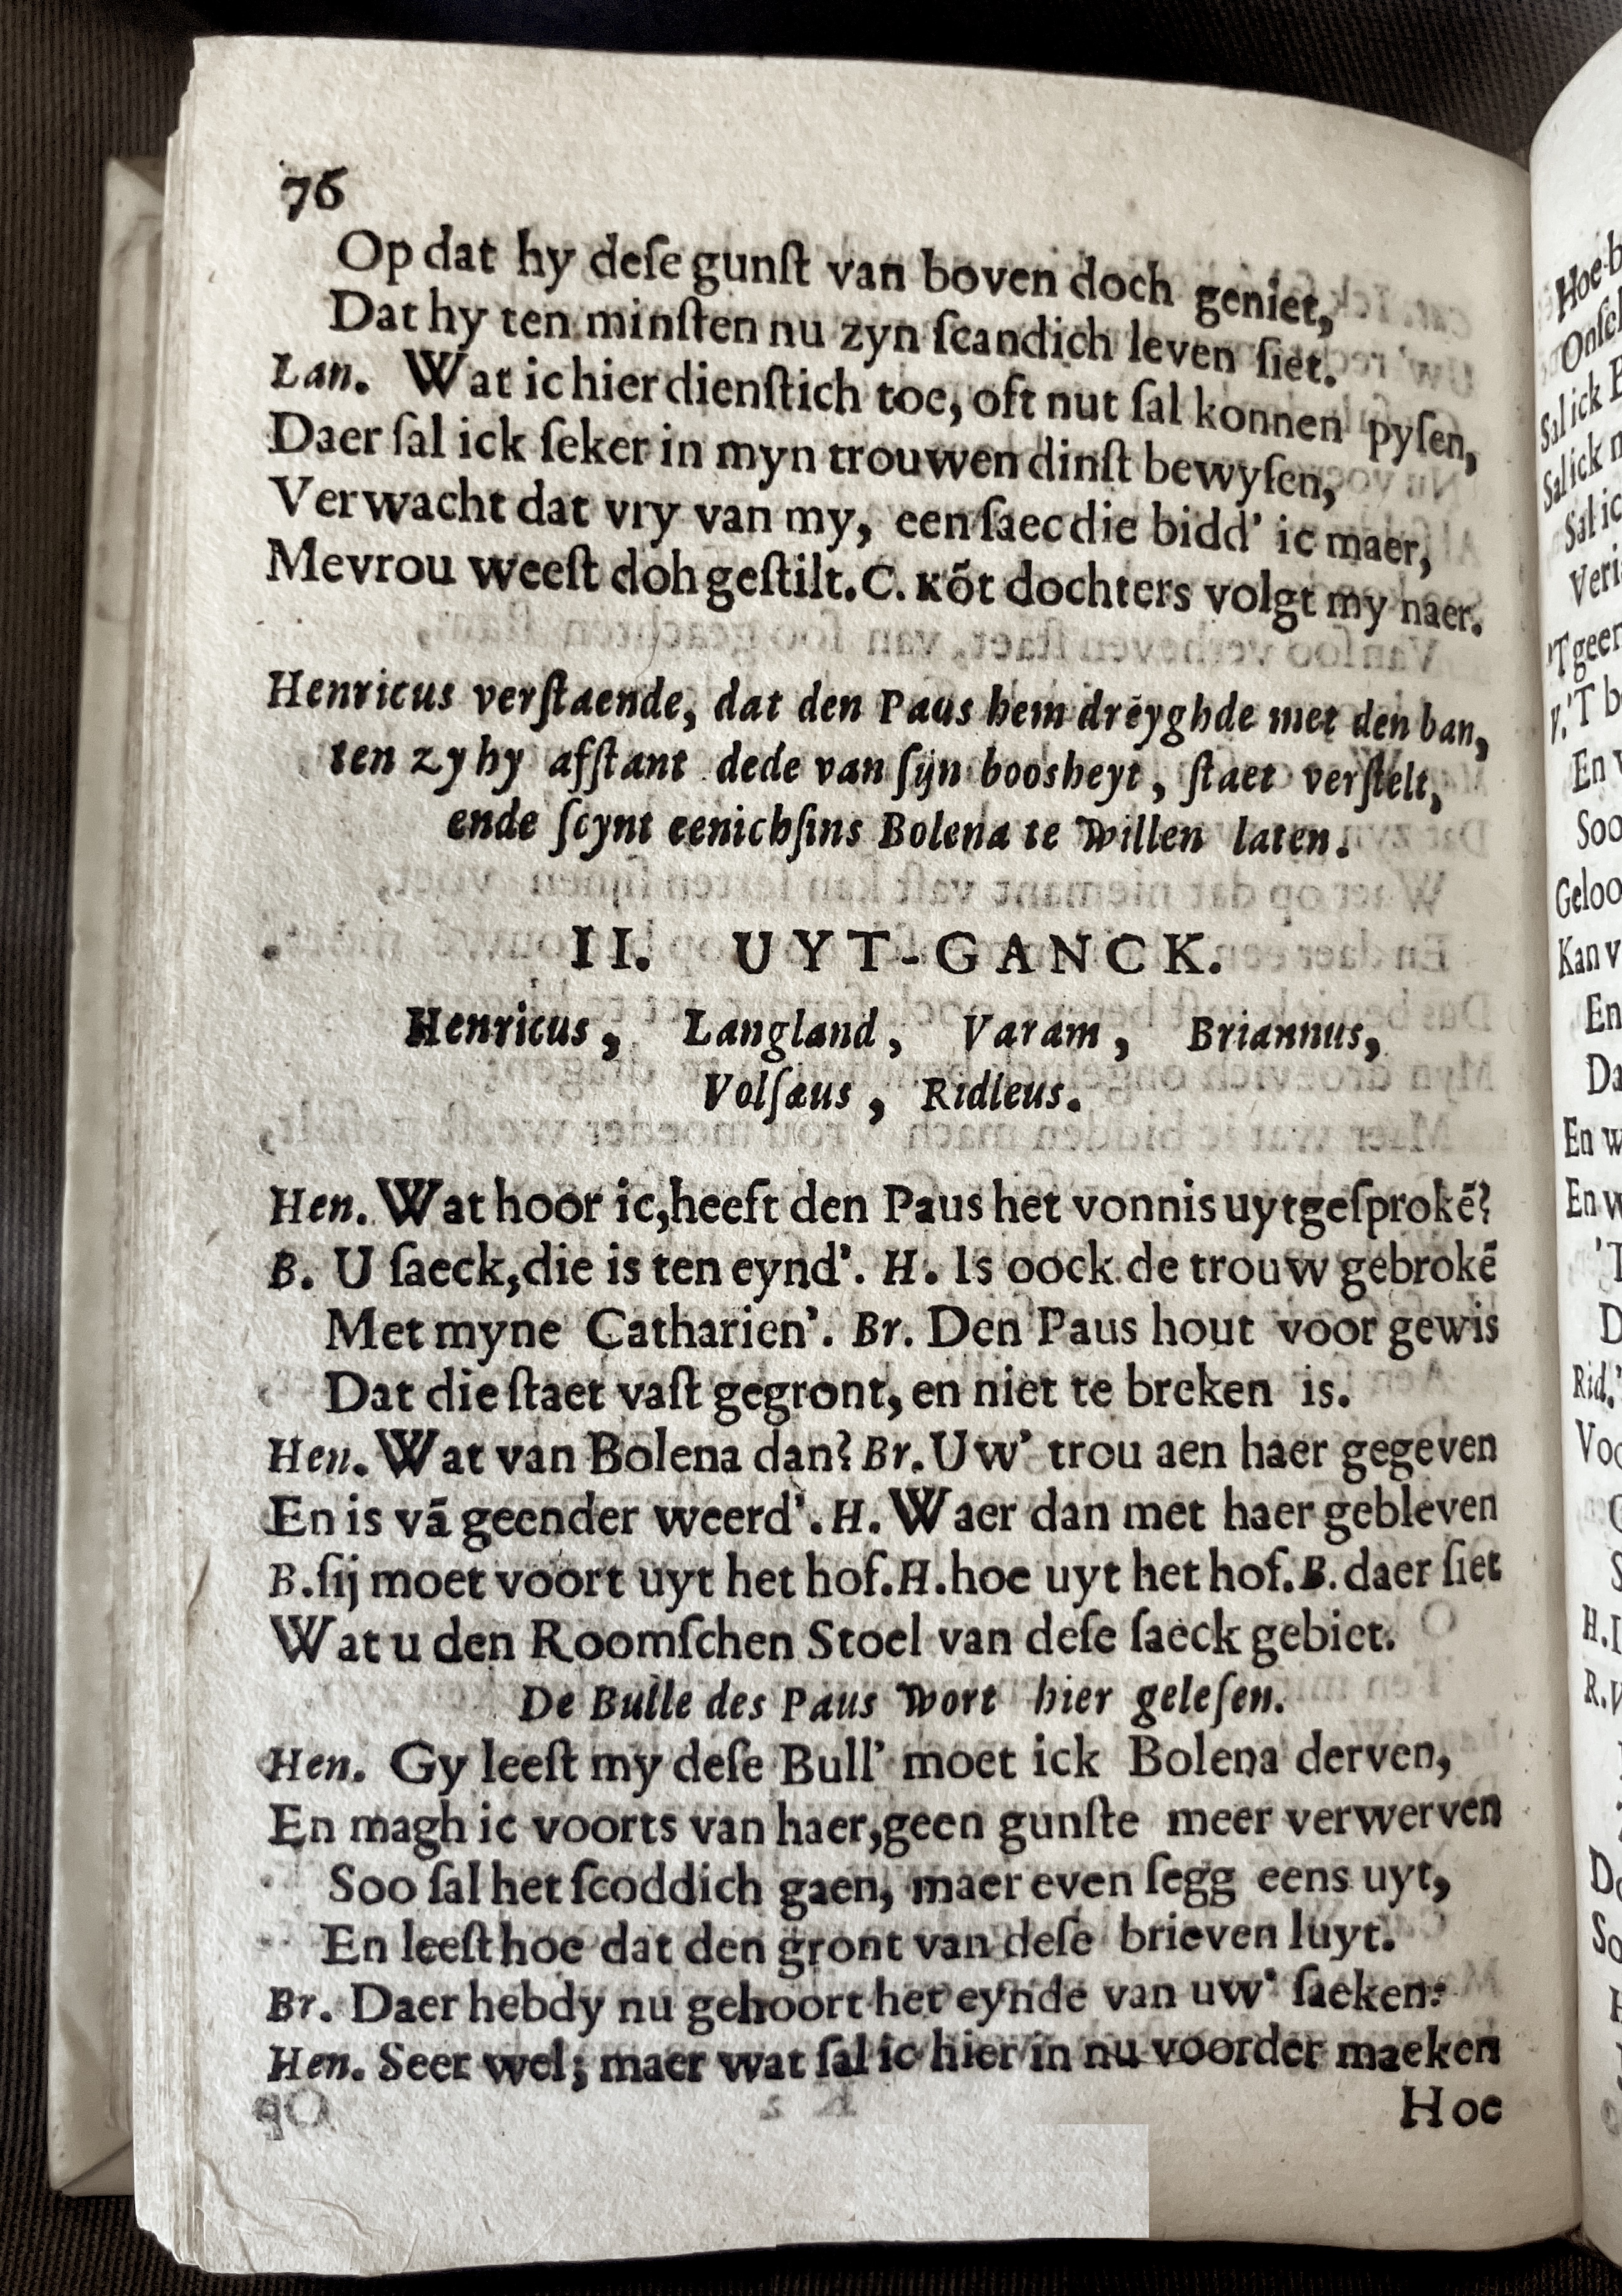 76
Op dat hy deſe gunſt van boven doch geniet,
Dat hy ten minſten nu zyn ſcandich leven ſiet.
Lan. Wat ic hier dienſtich toe, oft nut ſal konnen pyſen,
Daer ſal ick ſeker in myn trouwen dinſt bewyſen,
Verwacht dat vry van my, een ſaec die bidd' ic maer,
Mevrou weeſt doh geſtilt. C. Kõt dochters volgt my naer.
Henricus verſtaende, dat den Paus hem dreyghde met den ban,
ten zy hy afſtant dede van ſijn boosheyt, ſtaet verſtelt,
ende ſcynt eenichſins Bolena te willen laten.
II. UYT-GANCK.
Henricus, Langland, Varam, Briannus,
Volſæus, Ridleus.
Hen. Wat hoor ic, heeft den Paus het vonnis uytgeſprokẽ?
B. U ſaeck, die is ten eynd'. H. Is oock de trouw gebrokẽ
Met myne Catharien'. Br. Den Paus hout voor gewis
Dat die ſtaet vaſt gegront, en niet te breken is.
Hen. Wat van Bolena dan? Br. Uw' trou aen haer gegeven
En is vã geender weerd'. H. Waer dan met haer gebleven
B. ſij moet voort uyt het hof. H. hoe uyt het hof. B. daer ſiet
Wat u den Roomſchen Stoel van deſe ſaeck gebiet.
De Bulle des Paus wort hier geleſen.
Hen. Gy leeſt my deſe Bull' moet ick Bolena derven,
En magh ic voorts van haer, geen gunſte meer verwerven
Soo ſal het ſcoddich gaen, maer even ſegg eens uyt,
En leeſt hoe dat den gront van deſe brieven luyt.
Br. Daer hebdy nu gehoort het eynde van uw' ſaeken:
Hen. Seer wel; maer wat ſal ic hier in nu voorder maeken
Hoe